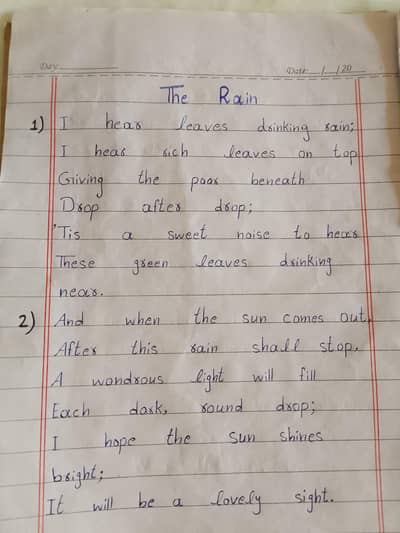 Day
Date / /20
The Rain
1) I hear leaves drinking rain;
I hear rich leaves on top
Giving the poor beneath
Drop after drop;
'Tis a sweet noise to hear
These green leaves drinking
near.
2) And when the sun comes out,
After this rain shall stop,
A wondrous light will fill
Each dark, round drop;
I hope the sun shines
bright;
It will be a lovely sight.